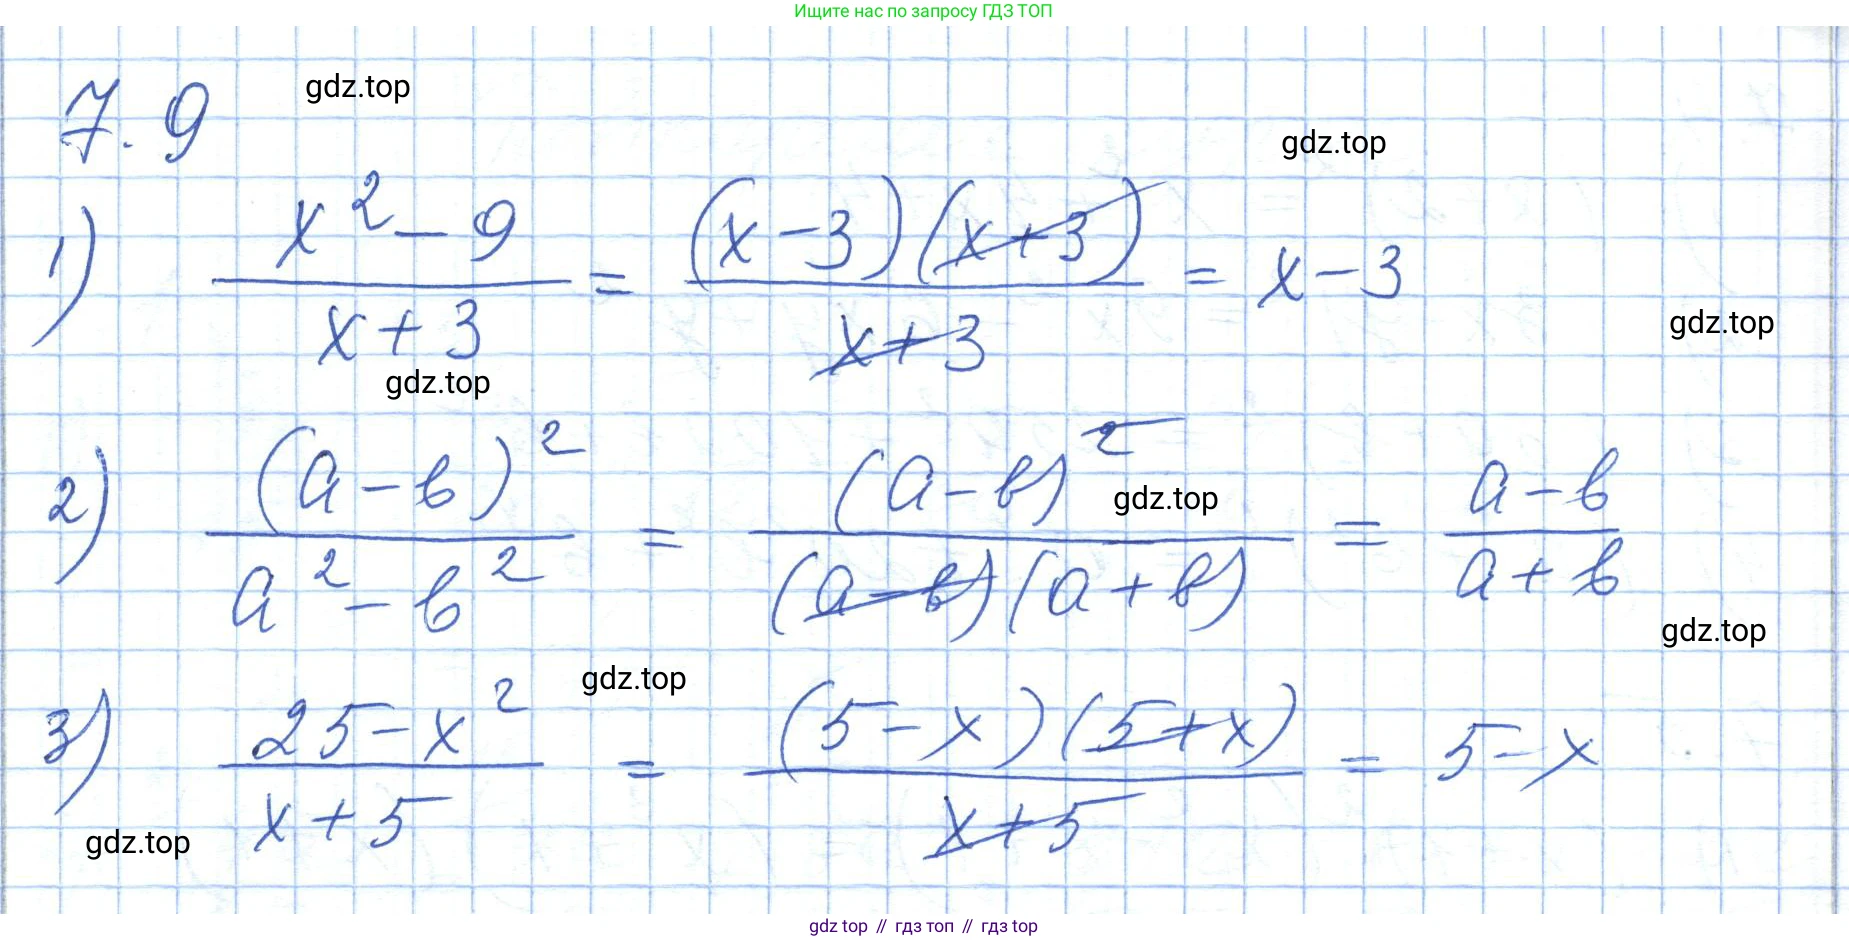 Ищите нас по запросу ГДЗ ТОП
7.9
gdz.top
gdz.top
1) (x² − 9)/(x + 3) = ((x − 3)(x + 3))/(x + 3) = x − 3
gdz.top
gdz.top
2) (a − b)²/(a² − b²) = (a − b)²/((a − b)(a + b)) = (a − b)/(a + b)
gdz.top
gdz.top
gdz.top
3) (25 − x²)/(x + 5) = ((5 − x)(5 + x))/(x + 5) = 5 − x
gdz.top
gdz top // гдз топ // гдз top